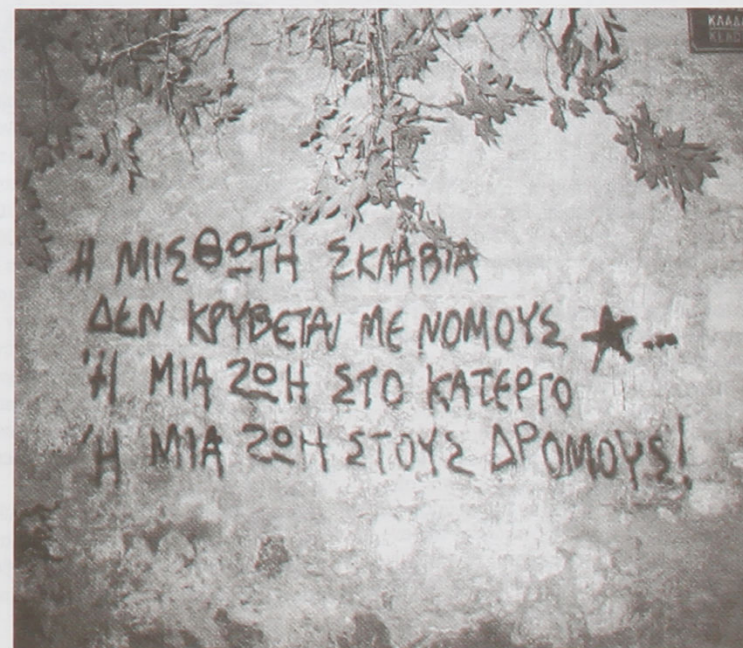 Η ΜΙΣΘΩΤΗ ΣΚΛΑΒΙΑ
ΔΕΝ ΚΡΥΒΕΤΑΙ ΜΕ ΝΟΜΟΥΣ ★...
Ή ΜΙΑ ΖΩΗ ΣΤΟ ΚΑΤΕΡΓΟ
Ή ΜΙΑ ΖΩΗ ΣΤΟΥΣ ΔΡΟΜΟΥΣ!